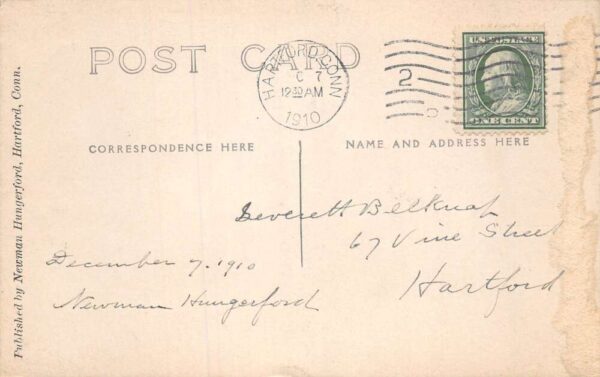 POST CARD
HARTFORD, CONN.
C 7
12 30 AM
1910
2
U.S. POSTAGE
ONE CENT
CORRESPONDENCE HERE
NAME AND ADDRESS HERE
Leverett Belknap
67 Vine Street
Hartford
December 7, 1910
Newman Hungerford
Published by Newman Hungerford, Hartford, Conn.